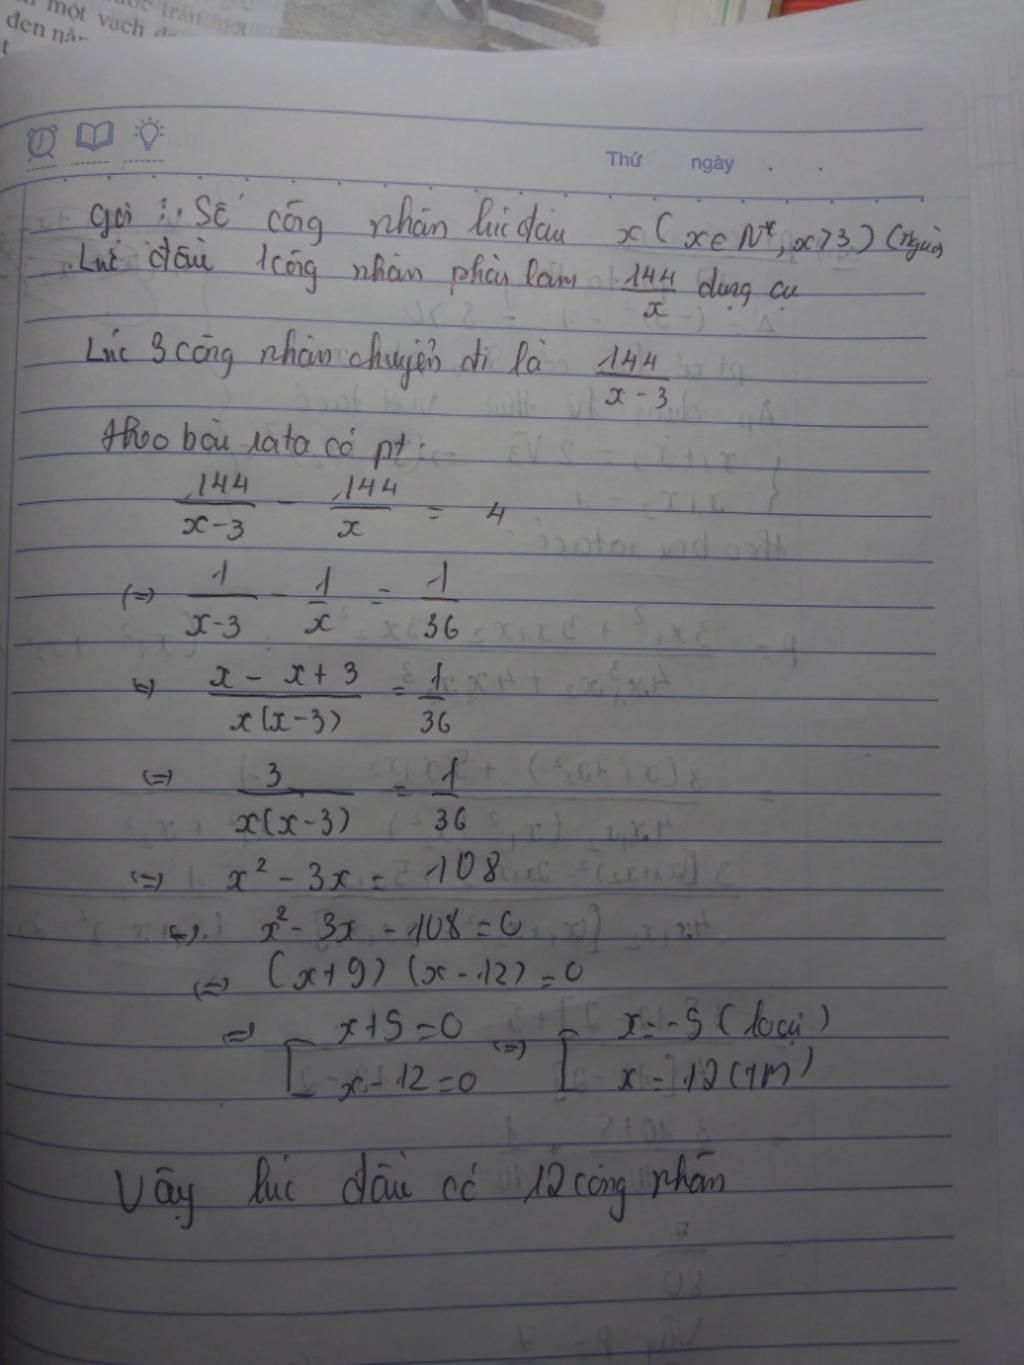 một vạch
đen nà
Thứ ngày . .
gọi : Số công nhân lúc đầu x ( x ∈ N*, x > 3 ) (người)
Lúc đầu 1 công nhân phải làm 144/x dụng cụ
Lúc 3 công nhân chuyển đi là 144/(x - 3)
theo bài ra ta có pt :
144/(x - 3) - 144/x = 4
(=) 1/(x - 3) - 1/x = 1/36
(=) (x - x + 3)/(x(x - 3)) = 1/36
(=) 3/(x(x - 3)) = 1/36
(=) x² - 3x = 108
(=) x² - 3x - 108 = 0
(=) (x + 9) (x - 12) = 0
=) [ x + 9 = 0 (=) [ x = -9 (loại)
x - 12 = 0 x = 12 (TM)
Vậy lúc đầu có 12 công nhân